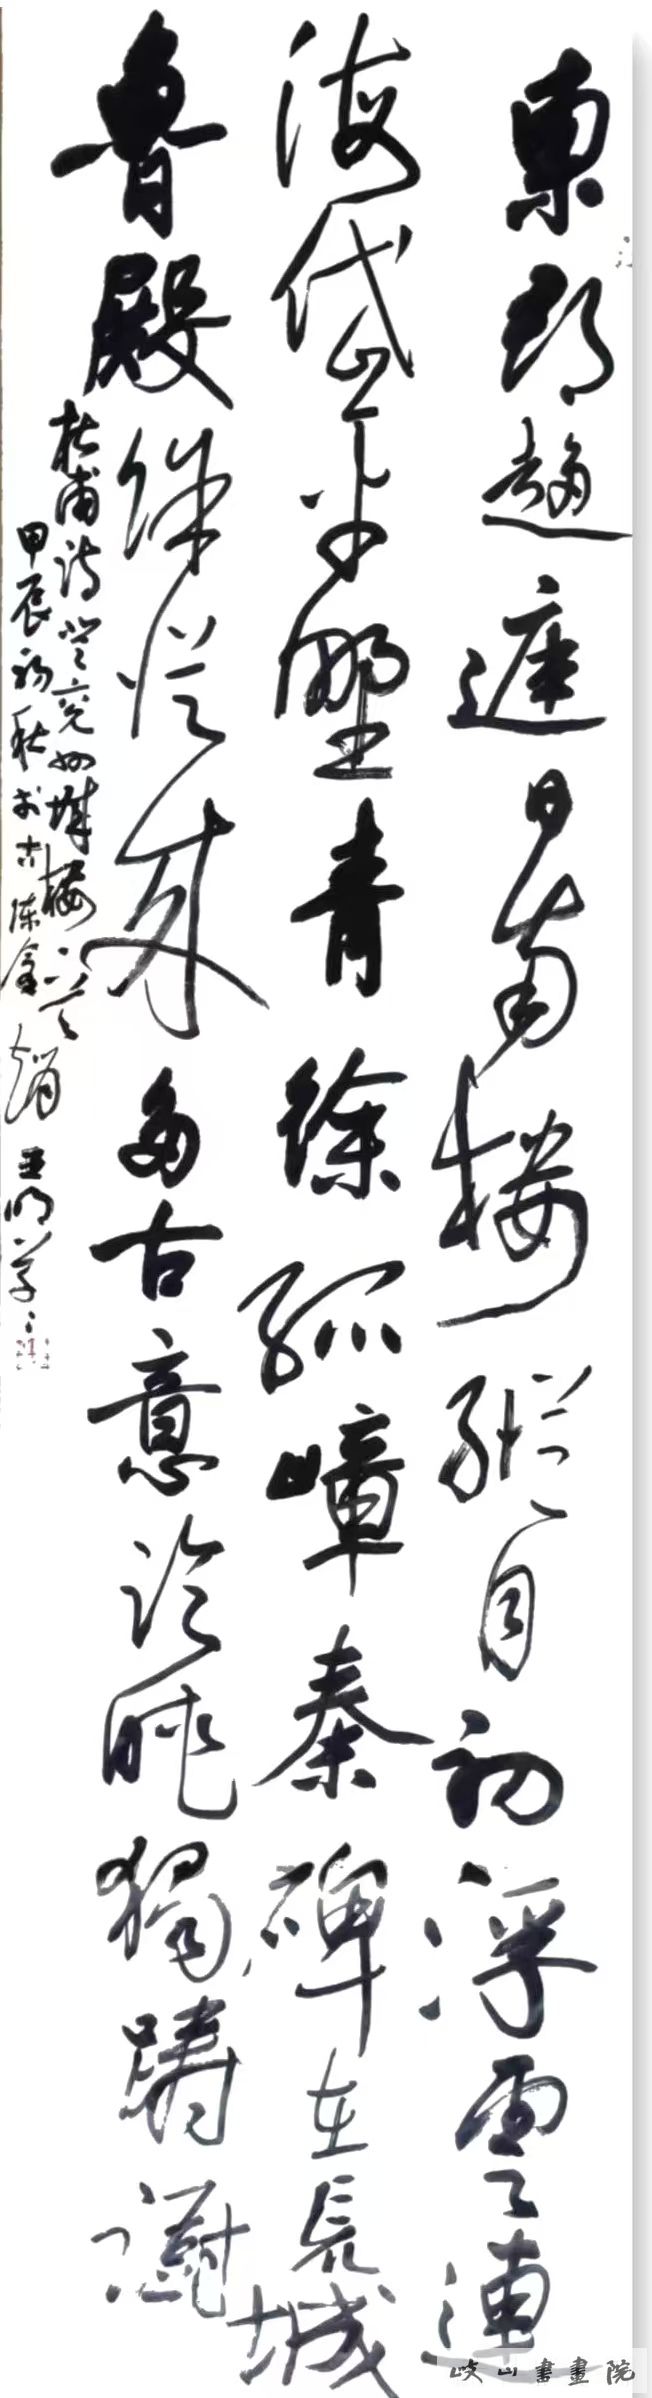 東郡趨庭日南樓縱目初浮雲連
海岱平野青徐孤嶂秦碑在荒城
魯殿餘從來多古意臨眺獨躊躇
杜甫詩登兗州城樓
甲辰初秋於古陳倉趙亞明草
岐山書畫院